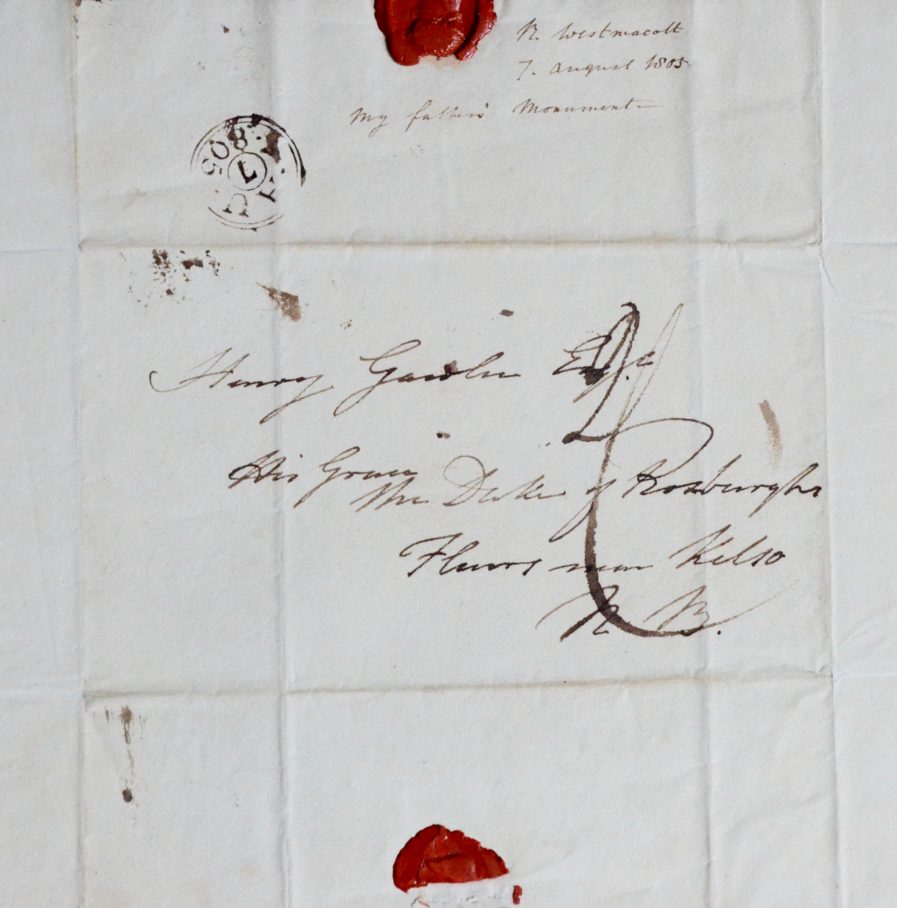 R. Westmacott
7. August 1805
My father's Monument
AU 7 805
Henry Gawler Esqre
His Grace
the Duke of Roxburghe
Fleurs near Kelso
N. B.